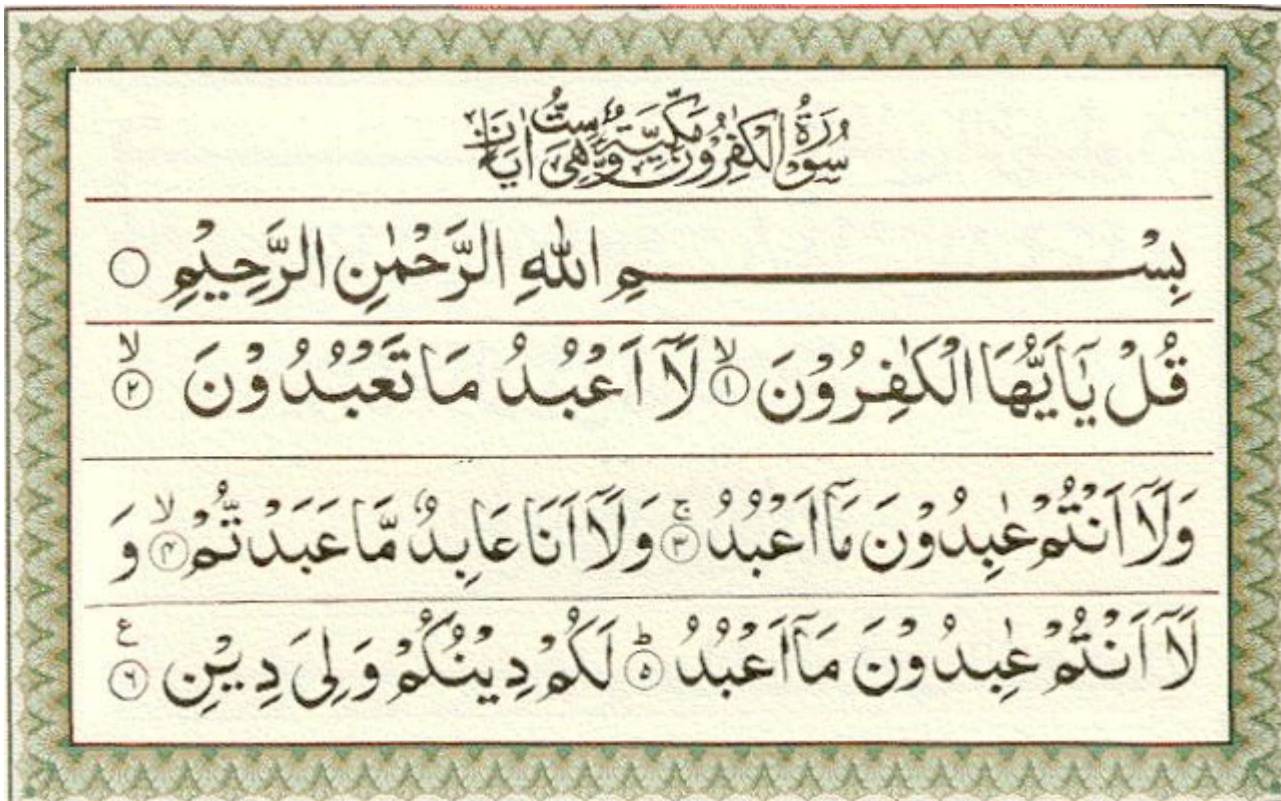 سُوْرَةُ الْكٰفِرُوْنَ مَكِّيَّةٌ وَّهِيَ سِتُّ اٰيَاتٍ
بِسْمِ اللهِ الرَّحْمٰنِ الرَّحِيْمِ ○
قُلْ يٰٓاَيُّهَا الْكٰفِرُوْنَ ۙ﴿۱﴾ لَآ اَعْبُدُ مَا تَعْبُدُوْنَ ۙ﴿۲﴾
وَلَآ اَنْتُمْ عٰبِدُوْنَ مَآ اَعْبُدُ ۚ﴿۳﴾ وَلَآ اَنَا عَابِدٌ مَّا عَبَدْتُّمْ ۙ﴿۴﴾ وَ
لَآ اَنْتُمْ عٰبِدُوْنَ مَآ اَعْبُدُ ؕ﴿۵﴾ لَكُمْ دِيْنُكُمْ وَلِيَ دِيْنِ ﴿۶﴾ ع